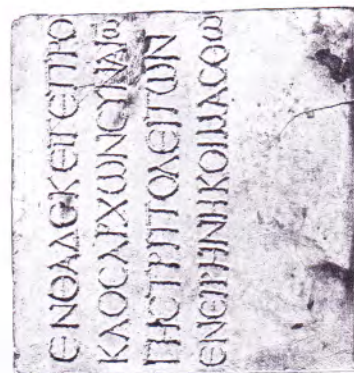 ΕΝΘΑΔΕΚΕΙΤΕΠΡΟ
ΚΛΟϹΑΡΧΩΝϹΥΝΑΓΩ
ΓΗϹΤΡΙΠΟΛΕΙΤΩΝ
ΕΝΕΙΡΗΝΗΚΟΙΜΑϹΘΩ